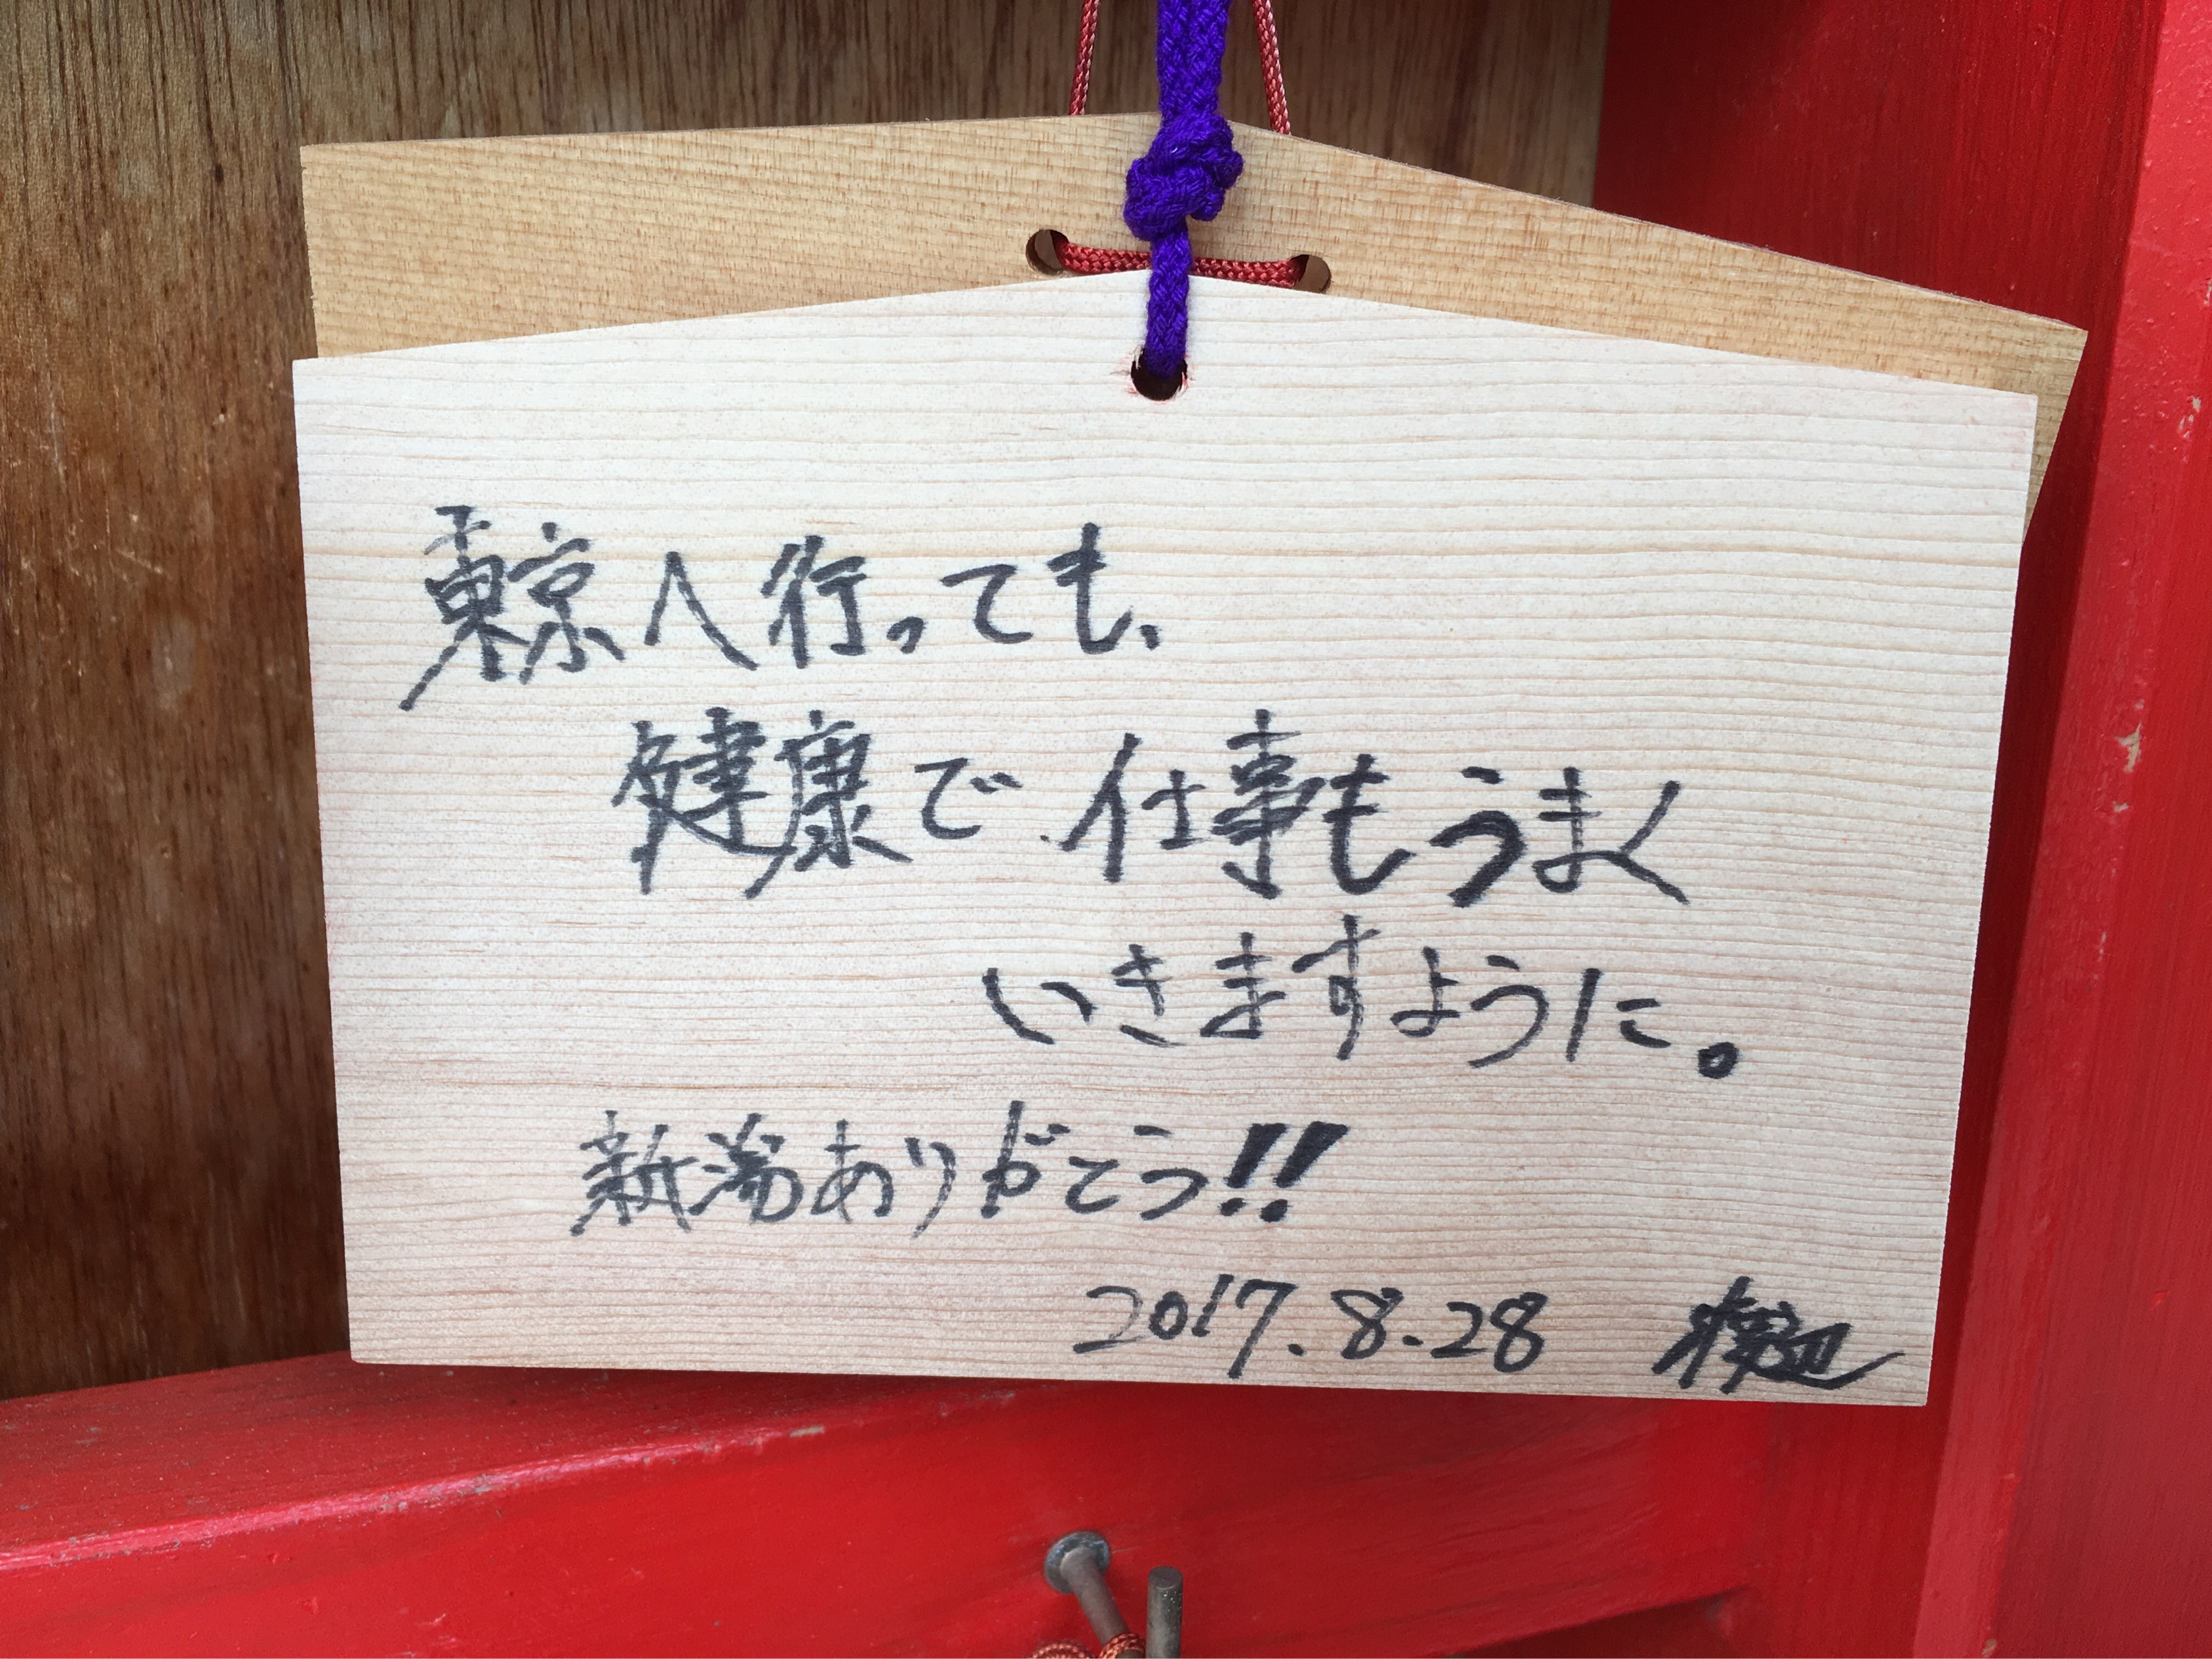 東京へ行っても、
健康で仕事もうまく
いきますように。
新潟ありがとう!!
2017.8.28